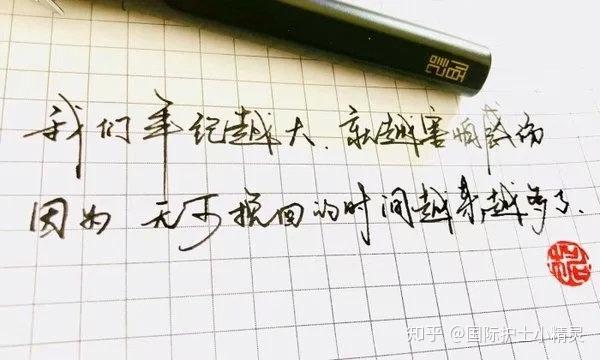 我们年纪越大.就越害怕感伤
因为无可挽回的时间越来越多了.
知乎 @国际护士小精灵